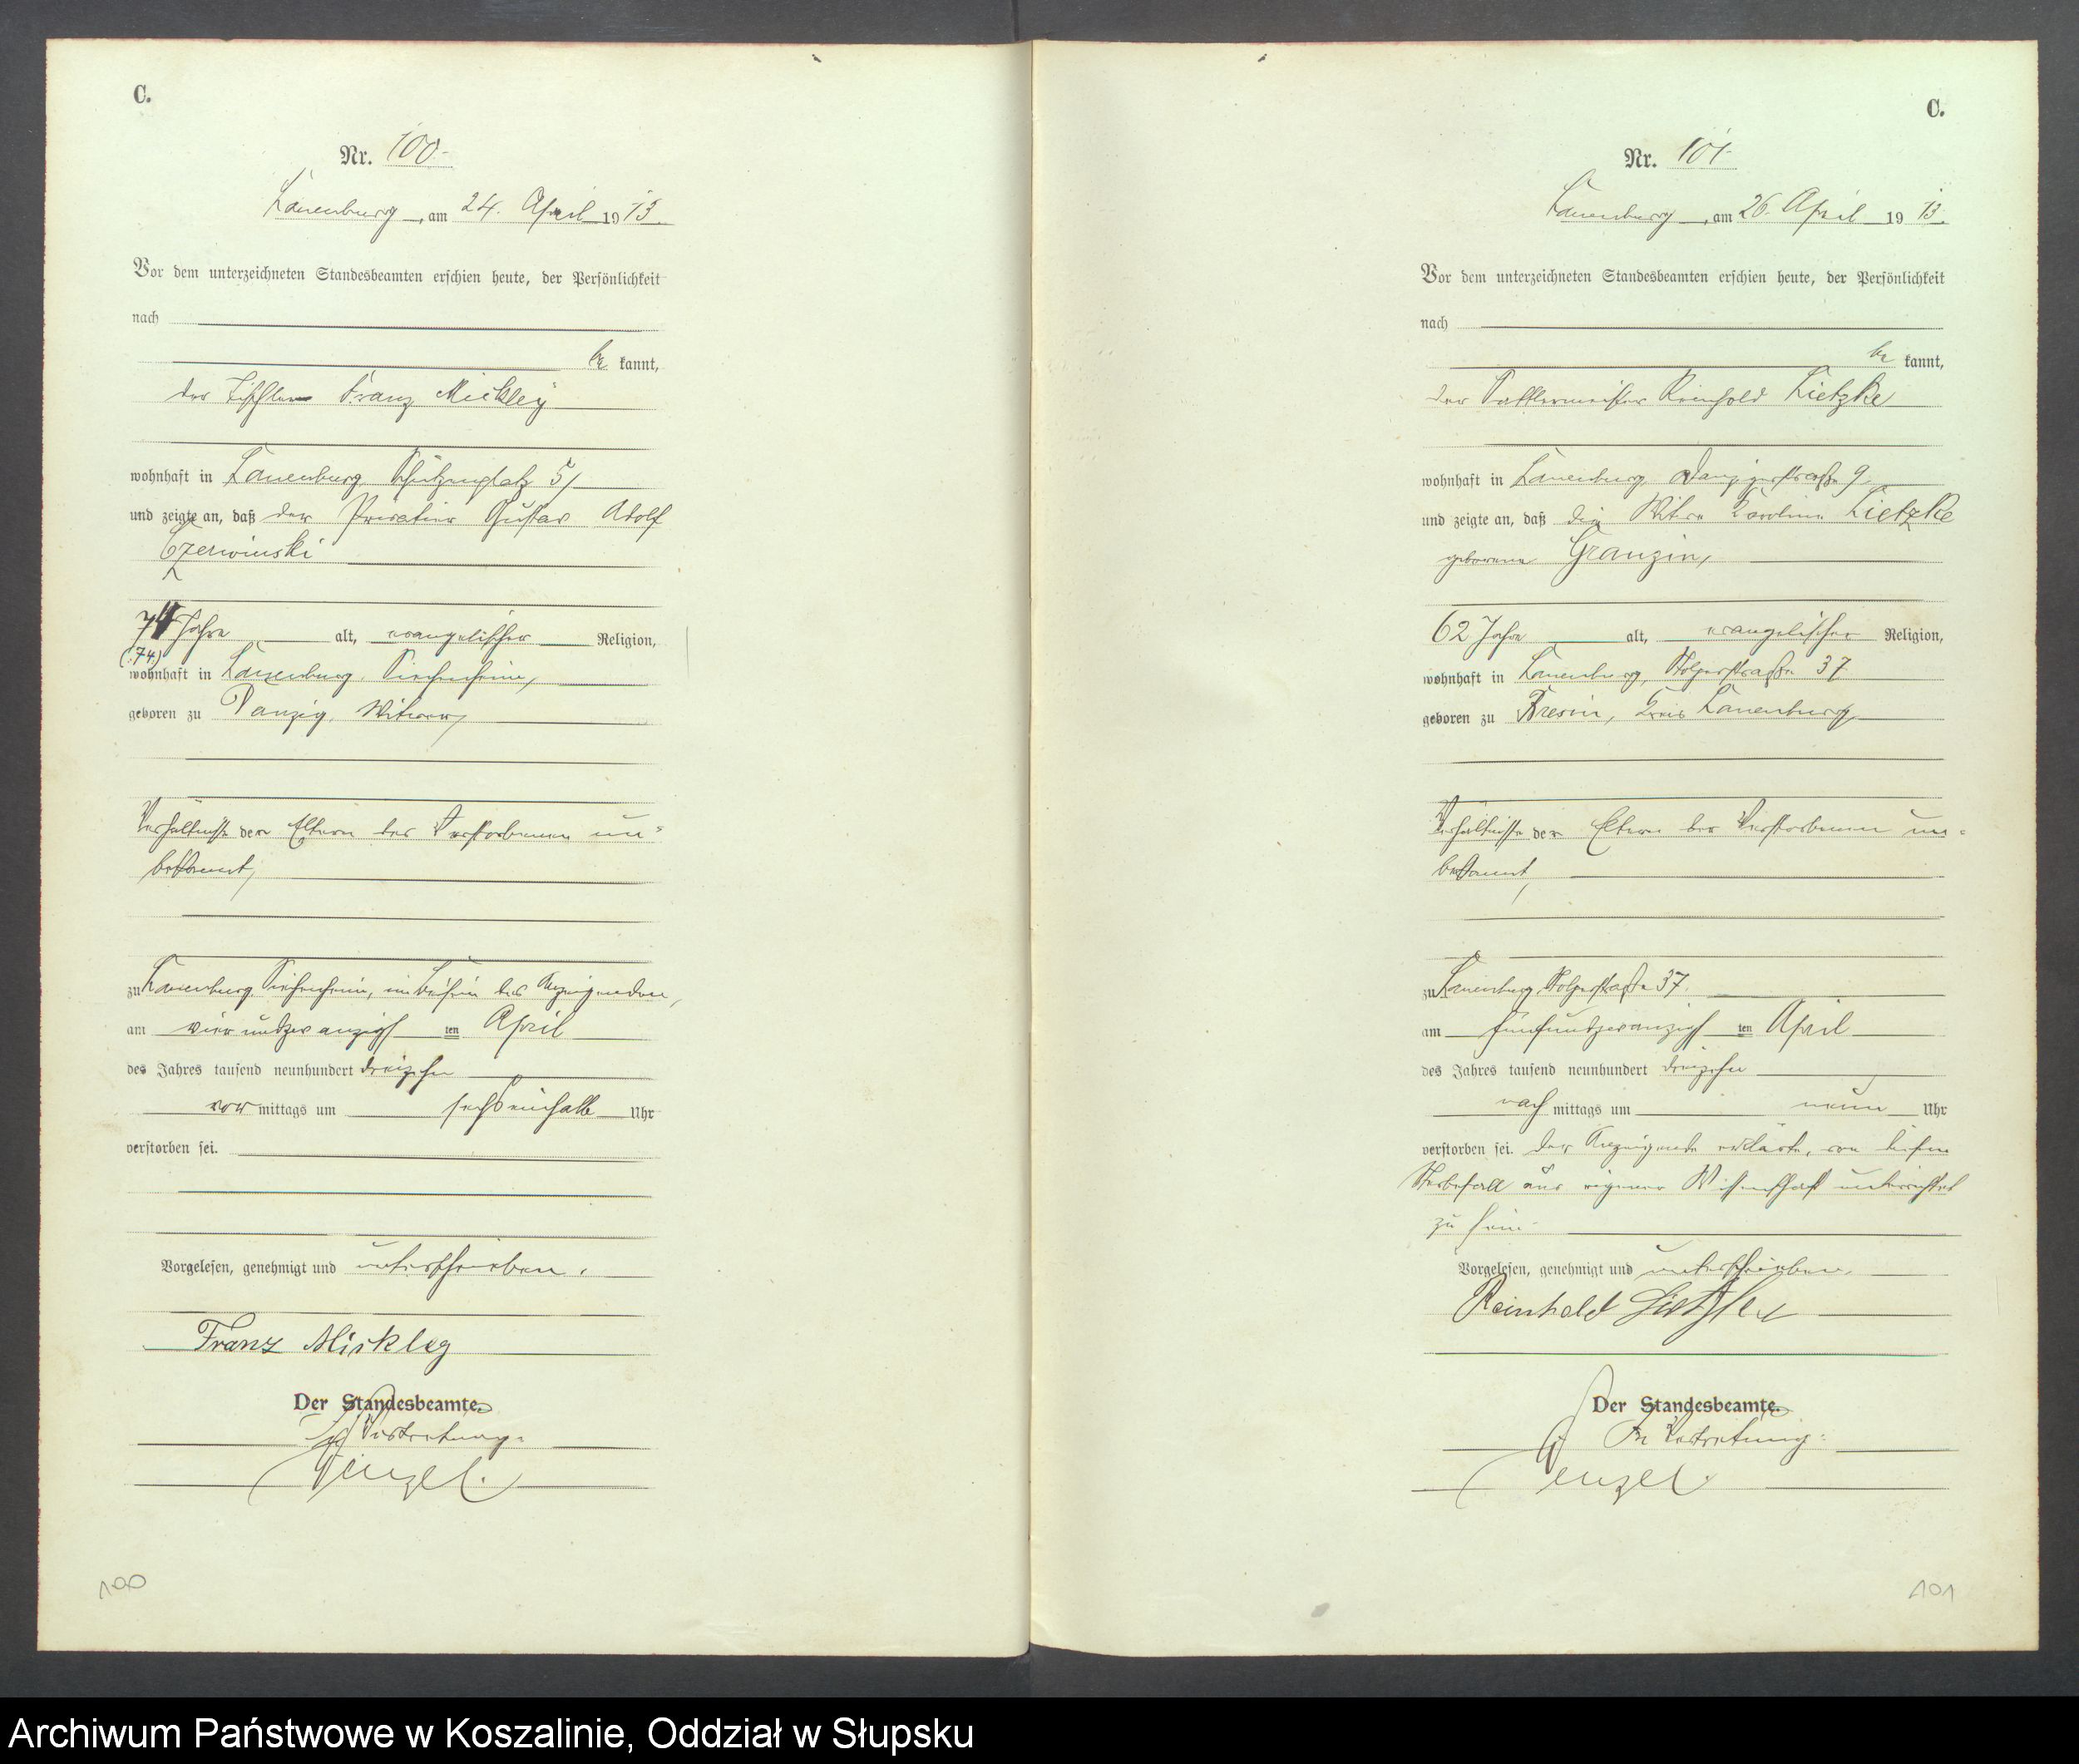 C.
Nr. 100.
Lauenburg, am 24. April 1913.
Vor dem unterzeichneten Standesbeamten erschien heute, der Persönlichkeit
nach
be kannt,
der Tischler Franz Mickley
wohnhaft in Lauenburg, Schützenplatz 5,
und zeigte an, daß der Privatier Gustav Adolf
Czerwinski
74 Jahre alt, evangelischer Religion,
(:74:)
wohnhaft in Lauenburg, Siechenheim,
geboren zu Danzig, Witwer,
Verhältnisse der Eltern des Verstorbenen un-
bekannt,
zu Lauenburg, Siechenheim, im Beisein des Anzeigenden,
am vierundzwanzigsten April
des Jahres tausend neunhundert dreizehn
vormittags um sechseinhalb Uhr
verstorben sei.
Vorgelesen, genehmigt und unterschrieben.
Franz Mickley
Der Standesbeamte.
In Vertretung.
100
C.
Nr. 101.
Lauenburg, am 26. April 1913.
Vor dem unterzeichneten Standesbeamten erschien heute, der Persönlichkeit
nach
be kannt,
der Sattlermeister Reinhold Lietzke
wohnhaft in Lauenburg, Danzigerstraße 9,
und zeigte an, daß die Witwe Karoline Lietzke
geborene Granzin,
62 Jahre alt, evangelischer Religion,
wohnhaft in Lauenburg, Stolperstraße 37
geboren zu Bresin, Kreis Lauenburg,
Verhältnisse der Eltern der Verstorbenen un-
bekannt,
zu Lauenburg, Stolperstraße 37.
am fünfundzwanzigsten April
des Jahres tausend neunhundert dreizehn
nachmittags um neun Uhr
verstorben sei. Der Anzeigende erklärte, von diesem
Sterbefall aus eigener Wissenschaft unterrichtet
zu sein.
Vorgelesen, genehmigt und unterschrieben.
Reinhold Lietzke
Der Standesbeamte.
In Vertretung:
101
Archiwum Państwowe w Koszalinie, Oddział w Słupsku